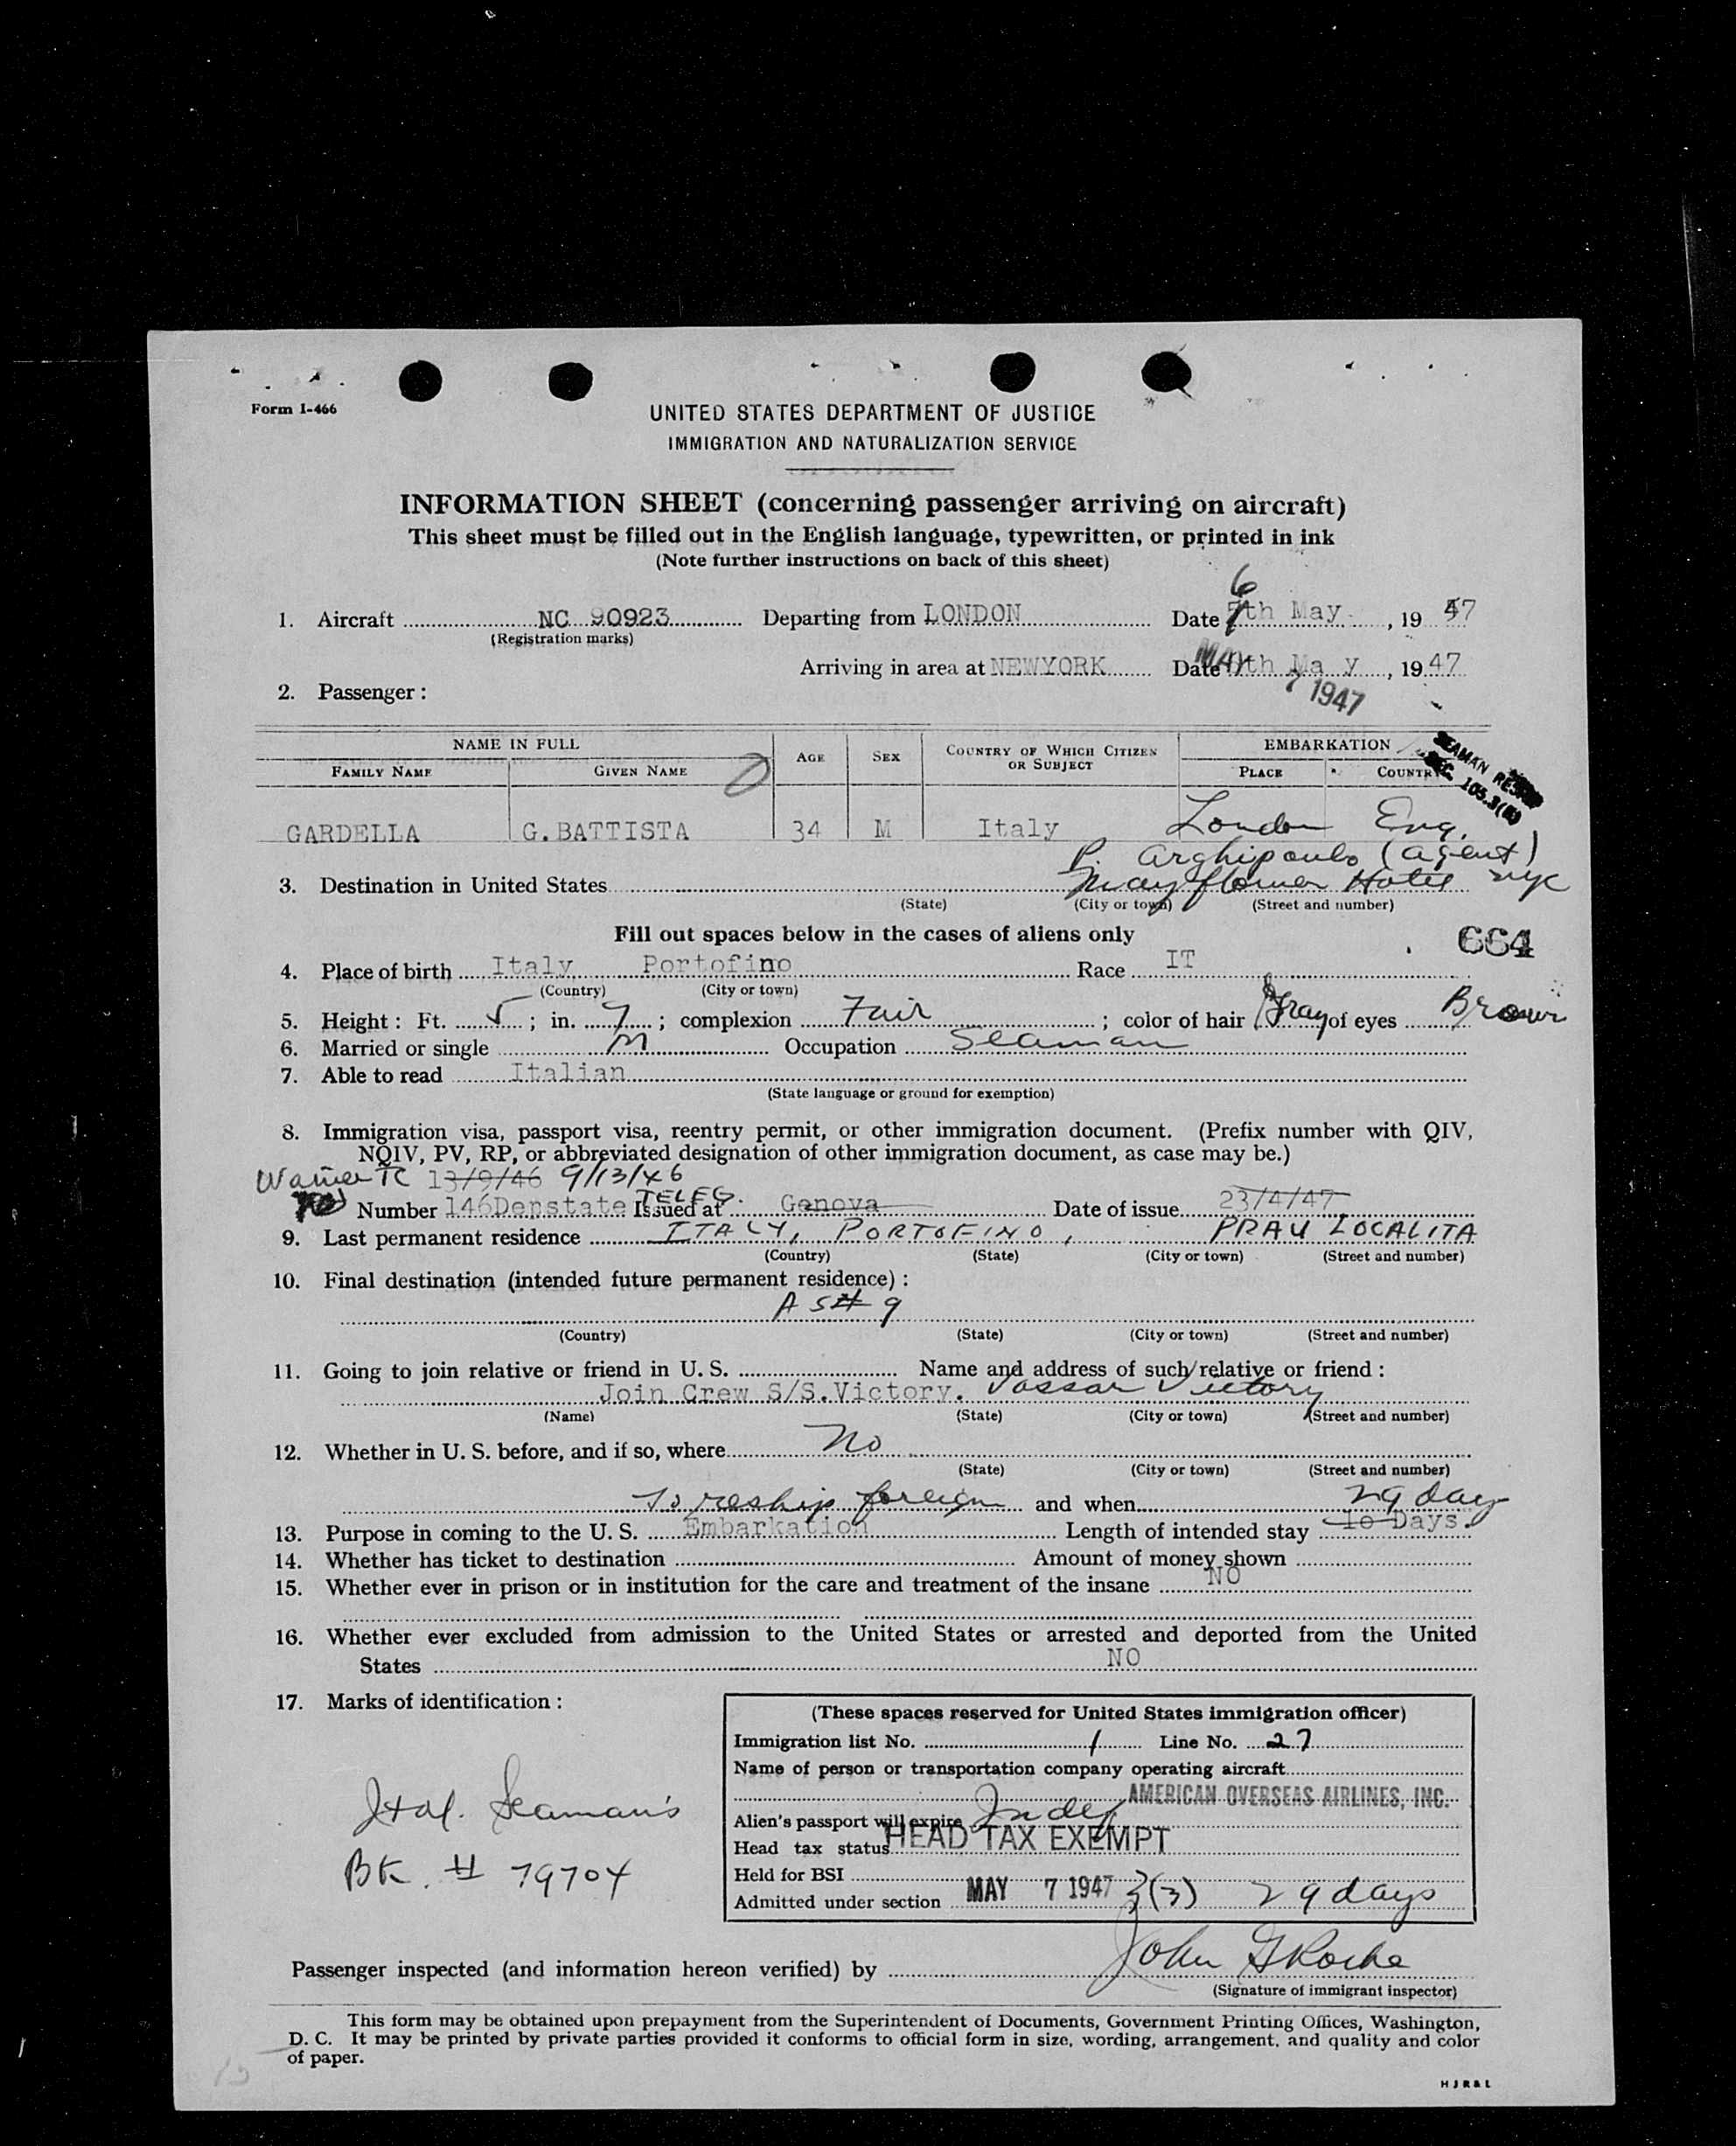 Form I-466
UNITED STATES DEPARTMENT OF JUSTICE
IMMIGRATION AND NATURALIZATION SERVICE
INFORMATION SHEET (concerning passenger arriving on aircraft)
This sheet must be filled out in the English language, typewritten, or printed in ink
(Note further instructions on back of this sheet)
6
1. Aircraft NC 90923 Departing from LONDON Date th May, 1947
(Registration marks)
Arriving in area at NEWYORK Date th Ma y, 1947
MAY 7 1947
2. Passenger:
NAME IN FULL AGE SEX COUNTRY OF WHICH CITIZEN OR SUBJECT EMBARKATION
FAMILY NAME GIVEN NAME PLACE COUNTRY
SEAMAN
SEC. 105.3
GARDELLA G.BATTISTA 34 M Italy London Eng.
P. Arghipoulo (agent)
3. Destination in United States Mayflower Hotel NYC
(State) (City or town) (Street and number)
Fill out spaces below in the cases of aliens only
664
4. Place of birth Italy Portofino Race IT
(Country) (City or town)
5. Height: Ft. 5; in. 7; complexion Fair; color of hair Gray of eyes Brown
6. Married or single M Occupation Seaman
7. Able to read Italian
(State language or ground for exemption)
8. Immigration visa, passport visa, reentry permit, or other immigration document. (Prefix number with QIV,
NQIV, PV, RP, or abbreviated designation of other immigration document, as case may be.)
13/9/46 9/13/46
Number 146Depstate TELEG. Issued at Genova Date of issue 23/4/47
9. Last permanent residence ITALY, PORTOFINO, PRAU LOCALITA
(Country) (State) (City or town) (Street and number)
10. Final destination (intended future permanent residence):
AS # 9
(Country) (State) (City or town) (Street and number)
11. Going to join relative or friend in U. S. Name and address of such relative or friend:
Join Crew S/S.Victory. Vassar Victory
(Name) (State) (City or town) (Street and number)
12. Whether in U. S. before, and if so, where No
(State) (City or town) (Street and number)
To reship foreign and when 29 days
13. Purpose in coming to the U. S. Embarkation Length of intended stay 10 Days.
14. Whether has ticket to destination Amount of money shown
15. Whether ever in prison or in institution for the care and treatment of the insane NO
16. Whether ever excluded from admission to the United States or arrested and deported from the United
States NO
17. Marks of identification:
Ital. Seaman's
BK. # 79704
(These spaces reserved for United States immigration officer)
Immigration list No. 1 Line No. 27
Name of person or transportation company operating aircraft
AMERICAN OVERSEAS AIRLINES, INC.
Alien's passport will expire Indef
Head tax status HEAD TAX EXEMPT
Held for BSI
Admitted under section MAY 7 1947 3(3) 29 days
Passenger inspected (and information hereon verified) by John G Roche
(Signature of immigrant inspector)
This form may be obtained upon prepayment from the Superintendent of Documents, Government Printing Offices, Washington,
D. C. It may be printed by private parties provided it conforms to official form in size, wording, arrangement, and quality and color
of paper.
H J R & L